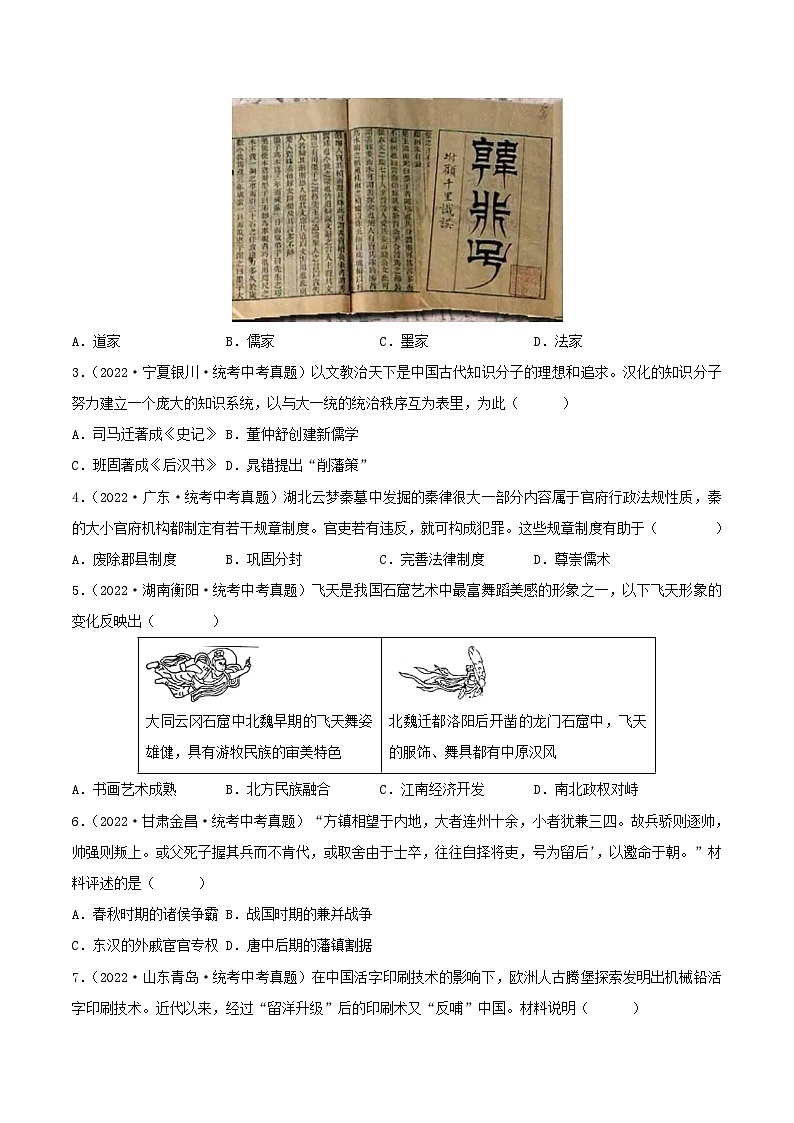 韓非子
A．道家 B．儒家 C．墨家 D．法家
3.（2022·宁夏银川·统考中考真题）以文教治天下是中国古代知识分子的理想和追求。汉化的知识分子
努力建立一个庞大的知识系统，以与大一统的统治秩序互为表里，为此（ ）
A．司马迁著成《史记》 B．董仲舒创建新儒学
C．班固著成《后汉书》 D．晁错提出“削藩策”
4.（2022·广东·统考中考真题）湖北云梦秦墓中发掘的秦律很大一部分内容属于官府行政法规性质，秦
的大小官府机构都制定有若干规章制度。官吏若有违反，就可构成犯罪。这些规章制度有助于（ ）
A．废除郡县制度 B．巩固分封 C．完善法律制度 D．尊崇儒术
5.（2022·湖南衡阳·统考中考真题）飞天是我国石窟艺术中最富舞蹈美感的形象之一，以下飞天形象的
变化反映出（ ）
大同云冈石窟中北魏早期的飞天舞姿
雄健，具有游牧民族的审美特色
北魏迁都洛阳后开凿的龙门石窟中，飞天
的服饰、舞具都有中原汉风
A．书画艺术成熟 B．北方民族融合 C．江南经济开发 D．南北政权对峙
6.（2022·甘肃金昌·统考中考真题）“方镇相望于内地，大者连州十余，小者犹兼三四。故兵骄则逐帅，
帅强则叛上。或父死子握其兵而不肯代，或取舍由于士卒，往往自择将吏，号为留后'，以邀命于朝。”材
料评述的是（ ）
A．春秋时期的诸侯争霸 B．战国时期的兼并战争
C．东汉的外戚宦官专权 D．唐中后期的藩镇割据
7.（2022·山东青岛·统考中考真题）在中国活字印刷技术的影响下，欧洲人古腾堡探索发明出机械铅活
字印刷技术。近代以来，经过“留洋升级”后的印刷术又“反哺”中国。材料说明（ ）